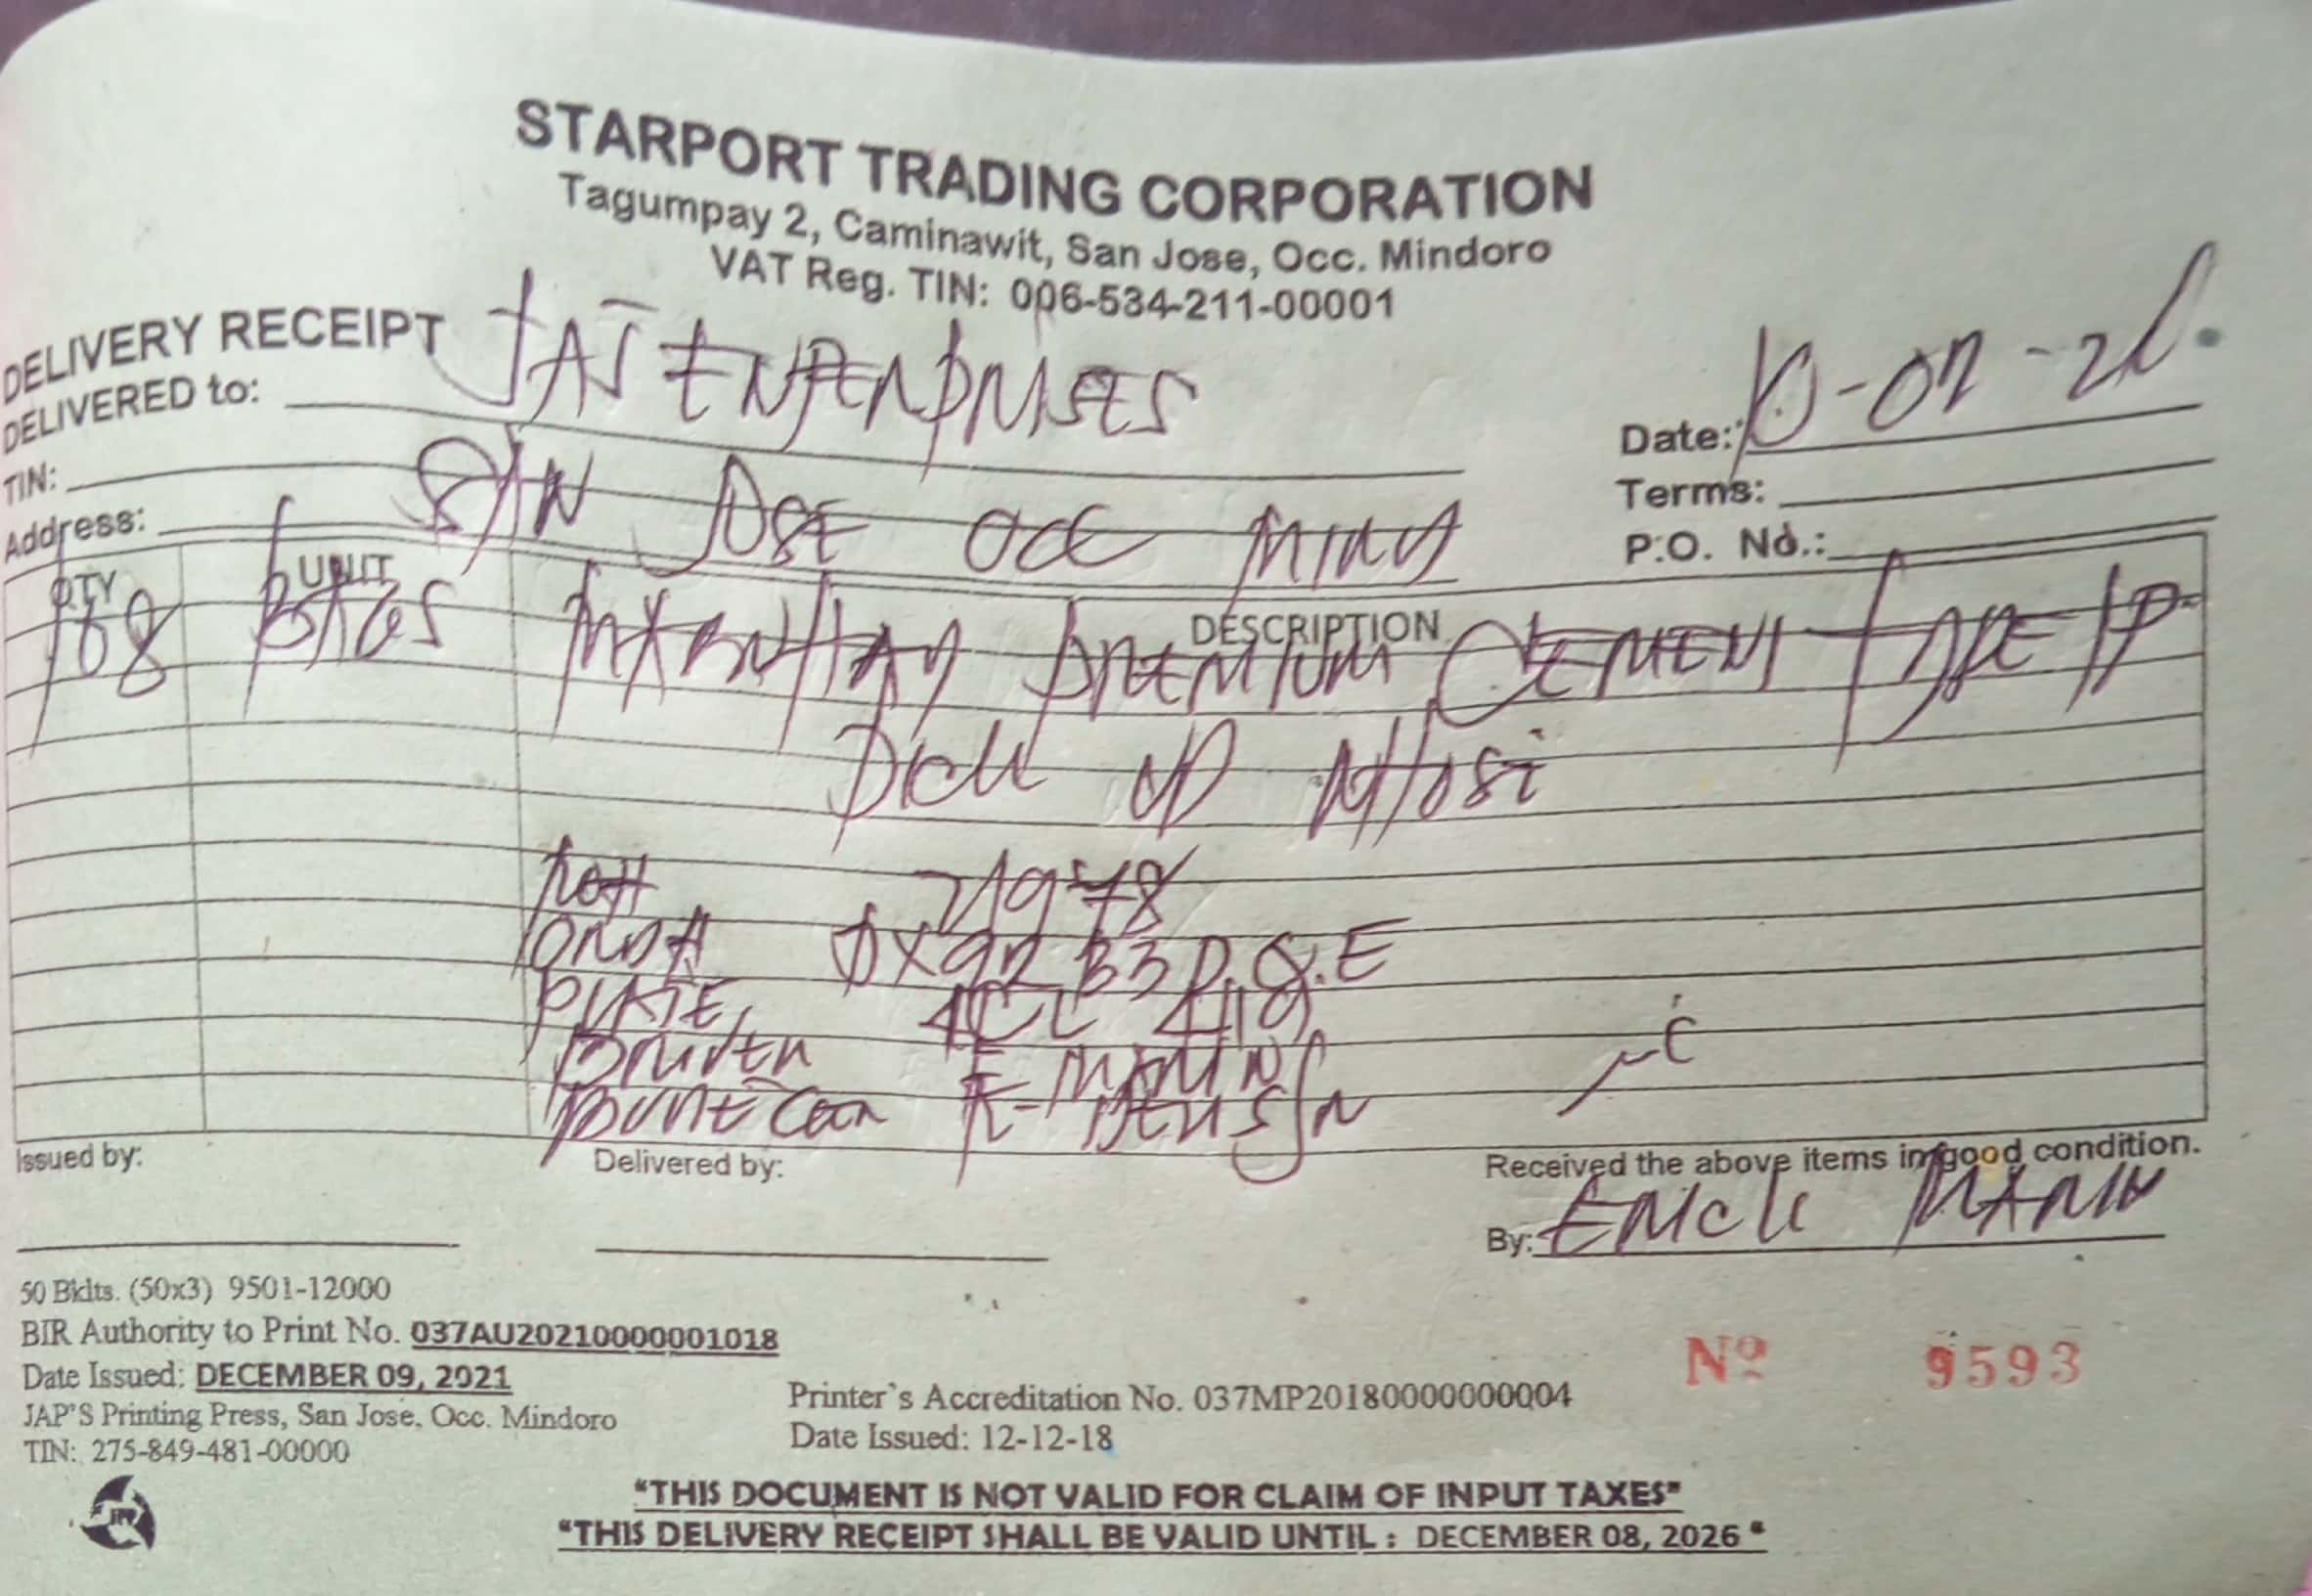 STARPORT TRADING CORPORATION
Tagumpay 2, Caminawit, San Jose, Occ. Mindoro
VAT Reg. TIN: 006-534-211-00001
DELIVERY RECEIPT
DELIVERED to: JAJ ENTERPRISES
Date:
TIN:
Terms:
Address: SAN JOSE OCC MIND
P.O. No.:
QTY UNIT DESCRIPTION
168 BAGS PREMIUM CEMENT TYPE 1P
PICK UP
21978
B3D.Q.E
PLATE
DRIVER E-MARIN
Issued by:
Delivered by:
Received the above items in good condition.
By: ERICK MARIN
50 Bklts. (50x3) 9501-12000
BIR Authority to Print No. 037AU20210000001018
Date Issued: DECEMBER 09, 2021
JAP'S Printing Press, San Jose, Occ. Mindoro
TIN: 275-849-481-00000
Printer's Accreditation No. 037MP20180000000004
Date Issued: 12-12-18
Nº 9593
"THIS DOCUMENT IS NOT VALID FOR CLAIM OF INPUT TAXES"
"THIS DELIVERY RECEIPT SHALL BE VALID UNTIL : DECEMBER 08, 2026"